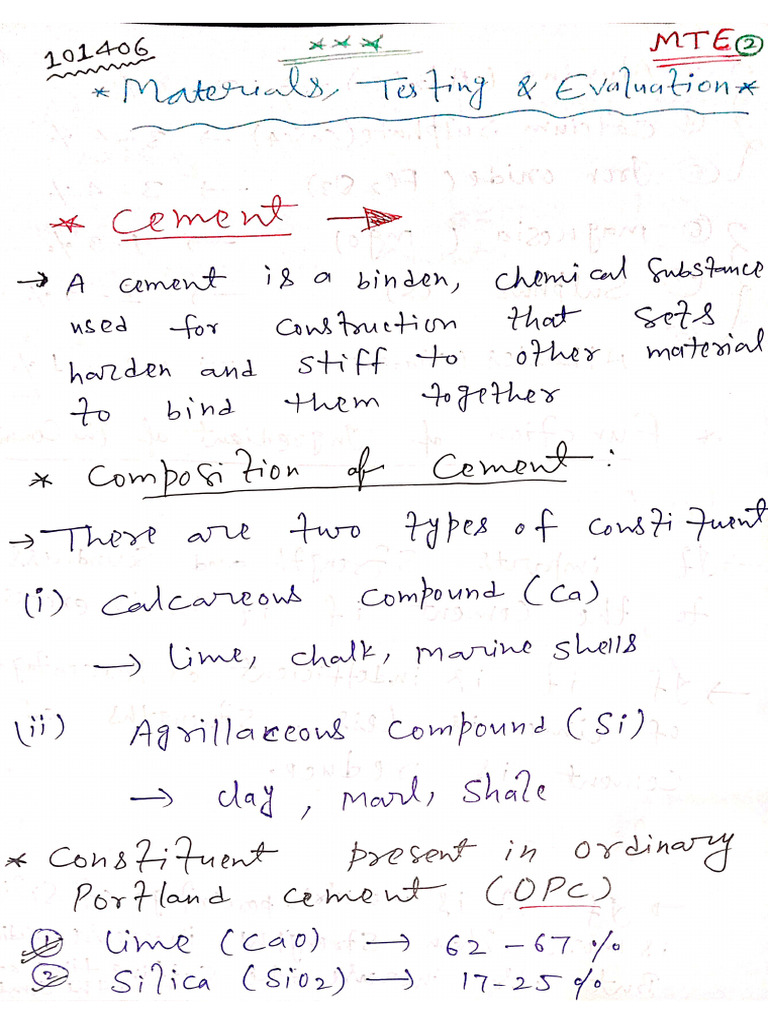 101406
*** 
MTE (2)
* Materials, Testing & Evaluation *
* Cement →
→ A cement is a binder, chemical substance
used for construction that sets
harden and stiff to other material
to bind them together
* Composition of Cement :
→ There are two types of constituent
(i) Calcareous compound (Ca)
→ lime, chalk, marine shells
(ii) Agrillaceous compound (Si)
→ clay, marl, shale
* Constituent present in ordinary
Portland cement (OPC)
(1) Lime (CaO) → 62 - 67 %
(2) Silica (SiO2) → 17-25 %